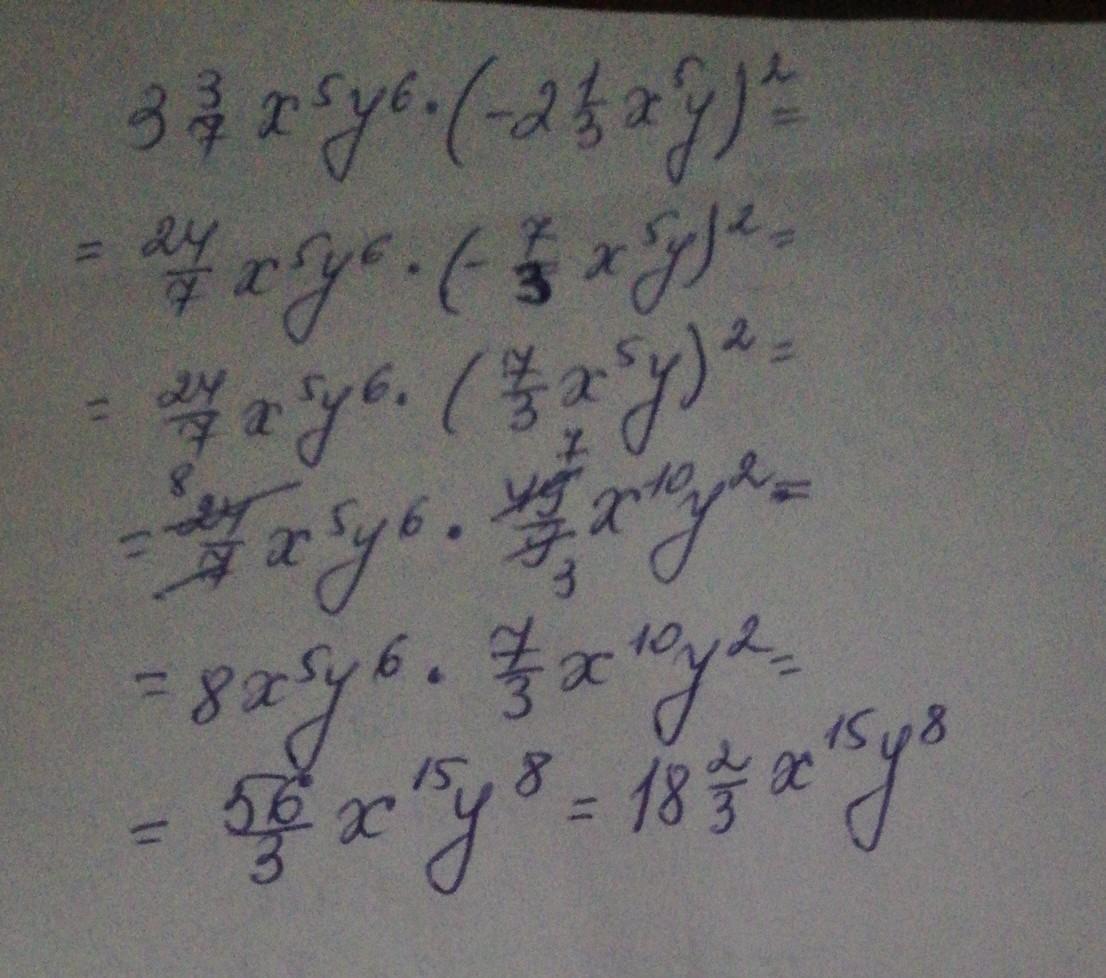 3 3/7 x⁵y⁶ · (-2 1/3 x⁵y)² =
= 24/7 x⁵y⁶ · (- 7/3 x⁵y)² =
= 24/7 x⁵y⁶ · (7/3 x⁵y)² =
= 8 24/7 x⁵y⁶ · 7 49/9 3 x¹⁰y² =
= 8x⁵y⁶ · 7/3 x¹⁰y² =
= 56/3 x¹⁵y⁸ = 18 2/3 x¹⁵y⁸